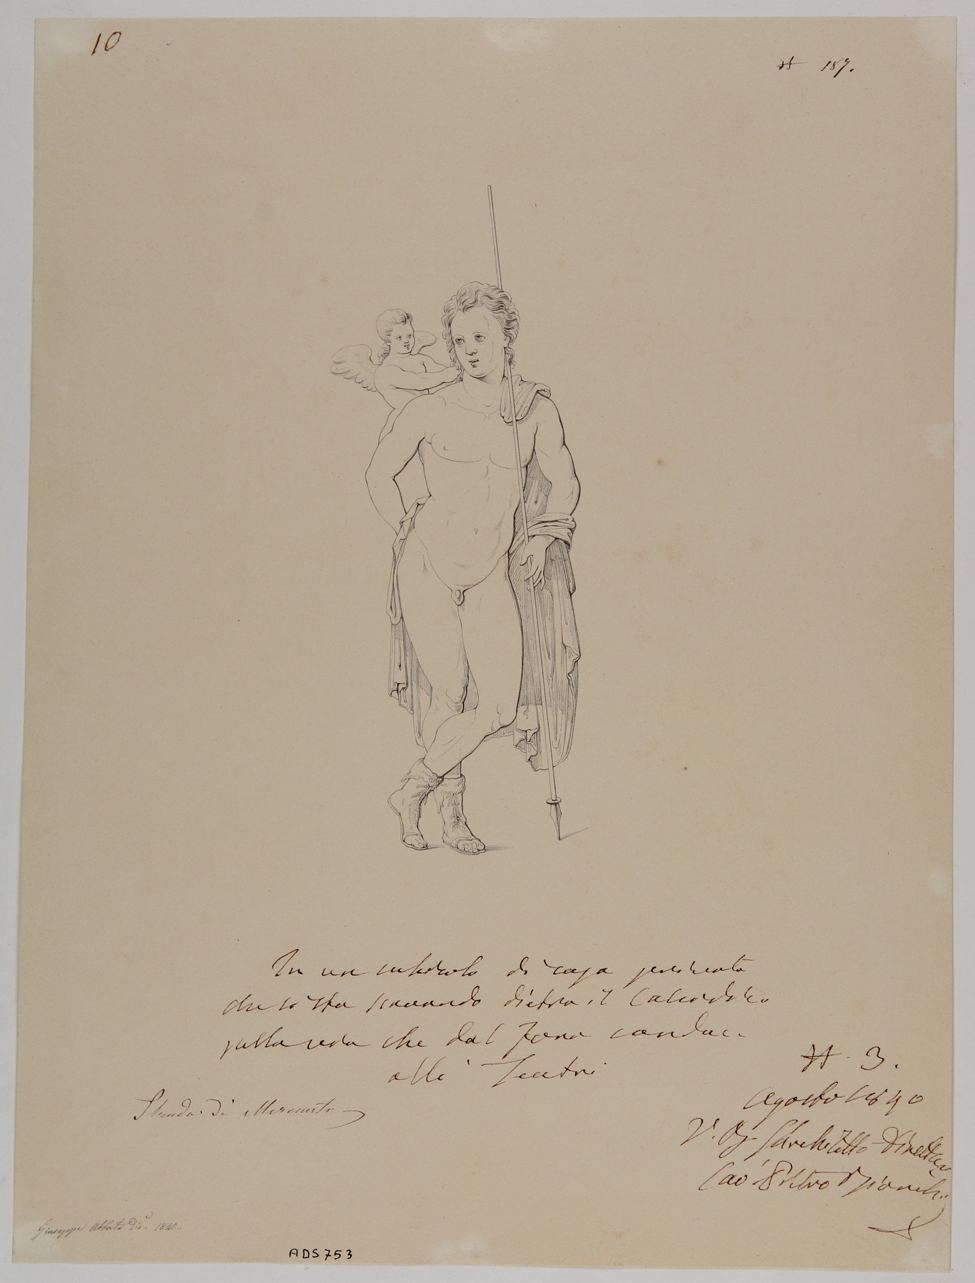 10
N 157.
In un cubicolo di casa
che si sta scavando dietro il Calcidico
sulla via che dal Foro conduce
alli Teatri
Strada di Mercurio
N. 3.
Agosto 1840
V.º Architetto Direttore
Cav. Pietro Bianchi
Giuseppe Abbate dis. 1840.
ADS753